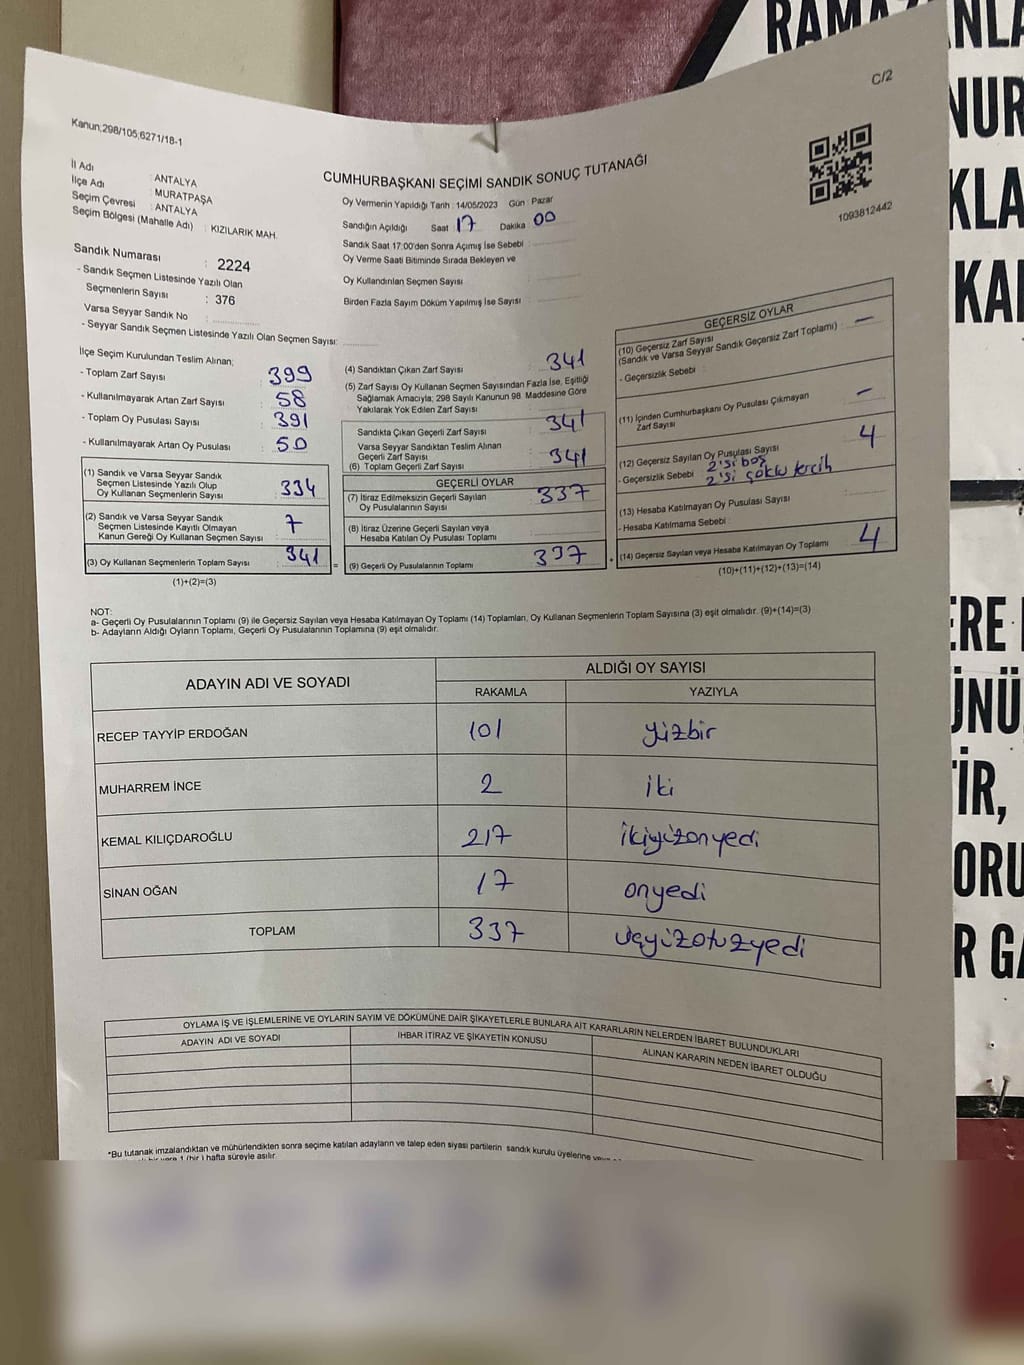 RAMAZANLA
NUR
KLA
KAI
ERE
ÜNÜ
İR,
ORU
R GA
C/2
Kanun;298/105;6271/18-1
1093812442
CUMHURBAŞKANI SEÇİMİ SANDIK SONUÇ TUTANAĞI
İl Adı : ANTALYA
İlçe Adı : MURATPAŞA
Seçim Çevresi : ANTALYA
Seçim Bölgesi (Mahalle Adı) : KIZILARIK MAH.
Sandık Numarası : 2224
- Sandık Seçmen Listesinde Yazılı Olan
Seçmenlerin Sayısı : 376
Varsa Seyyar Sandık No :
- Seyyar Sandık Seçmen Listesinde Yazılı Olan Seçmen Sayısı:
Oy Vermenin Yapıldığı Tarih : 14/05/2023 Gün : Pazar
Sandığın Açıldığı Saat 17 Dakika 00
Sandık Saat 17:00'den Sonra Açımış İse Sebebi :
Oy Verme Saati Bitiminde Sırada Bekleyen ve
Oy Kullandırılan Seçmen Sayısı :
Birden Fazla Sayım Döküm Yapılmış İse Sayısı :
İlçe Seçim Kurulundan Teslim Alınan;
- Toplam Zarf Sayısı : 399
- Kullanılmayarak Artan Zarf Sayısı : 58
- Toplam Oy Pusulası Sayısı : 391
- Kullanılmayarak Artan Oy Pusulası : 50
(1) Sandık ve Varsa Seyyar Sandık
Seçmen Listesinde Yazılı Olup
Oy Kullanan Seçmenlerin Sayısı : 334
(2) Sandık ve Varsa Seyyar Sandık
Seçmen Listesinde Kayıtlı Olmayan
Kanun Gereği Oy Kullanan Seçmen Sayısı : 7
(3) Oy Kullanan Seçmenlerin Toplam Sayısı : 341
(1)+(2)=(3)
(4) Sandıktan Çıkan Zarf Sayısı : 341
(5) Zarf Sayısı Oy Kullanan Seçmen Sayısından Fazla İse, Eşitliği
Sağlamak Amacıyla; 298 Sayılı Kanunun 98 Maddesine Göre
Yakılarak Yok Edilen Zarf Sayısı :
Sandıkta Çıkan Geçerli Zarf Sayısı : 341
Varsa Seyyar Sandıktan Teslim Alınan
Geçerli Zarf Sayısı :
(6) Toplam Geçerli Zarf Sayısı : 341
GEÇERLİ OYLAR
(7) İtiraz Edilmeksizin Geçerli Sayılan
Oy Pusulalarının Sayısı : 337
(8) İtiraz Üzerine Geçerli Sayılan veya
Hesaba Katılan Oy Pusulası Toplamı :
= (9) Geçerli Oy Pusulalarının Toplamı : 337 +
GEÇERSİZ OYLAR
(10) Geçersiz Zarf Sayısı
(Sandık ve Varsa Seyyar Sandık Geçersiz Zarf Toplamı) : —
- Geçersizlik Sebebi :
(11) İçinden Cumhurbaşkanı Oy Pusulası Çıkmayan
Zarf Sayısı : —
(12) Geçersiz Sayılan Oy Pusulası Sayısı : 4
- Geçersizlik Sebebi 2'si boş
2'si çoklu tercih
(13) Hesaba Katılmayan Oy Pusulası Sayısı :
- Hesaba Katılmama Sebebi :
(14) Geçersiz Sayılan veya Hesaba Katılmayan Oy Toplamı : 4
(10)+(11)+(12)+(13)=(14)
NOT:
a- Geçerli Oy Pusulalarının Toplamı (9) ile Geçersiz Sayılan veya Hesaba Katılmayan Oy Toplamı (14) Toplamları, Oy Kullanan Seçmenlerin Toplam Sayısına (3) eşit olmalıdır. (9)+(14)=(3)
b- Adayların Aldığı Oyların Toplamı, Geçerli Oy Pusulalarının Toplamına (9) eşit olmalıdır.
ADAYIN ADI VE SOYADI ALDIĞI OY SAYISI
RAKAMLA YAZIYLA
RECEP TAYYİP ERDOĞAN 101 yüzbir
MUHARREM İNCE 2 iki
KEMAL KILIÇDAROĞLU 217 ikiyüzonyedi
SİNAN OĞAN 17 onyedi
TOPLAM 337 üçyüzotuzyedi
OYLAMA İŞ VE İŞLEMLERİNE VE OYLARIN SAYIM VE DÖKÜMÜNE DAİR ŞİKAYETLERLE BUNLARA AİT KARARLARIN NELERDEN İBARET BULUNDUKLARI
ADAYIN ADI VE SOYADI İHBAR İTİRAZ VE ŞİKAYETİN KONUSU ALINAN KARARIN NEDEN İBARET OLDUĞU
*Bu tutanak imzalandıktan ve mühürlendikten sonra seçime katılan adayların ve talep eden siyasi partilerin sandık kurulu üyelerine
1 (bir) hafta süreyle asılır.